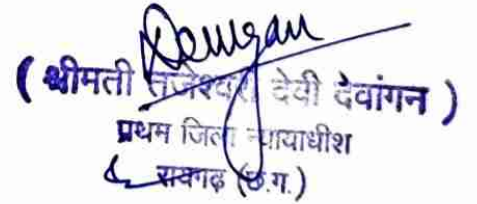 Dewgan
( श्रीमती तजेश्वरी देवी देवांगन )
प्रथम जिला न्यायाधीश
रायगढ़ (छ.ग.)